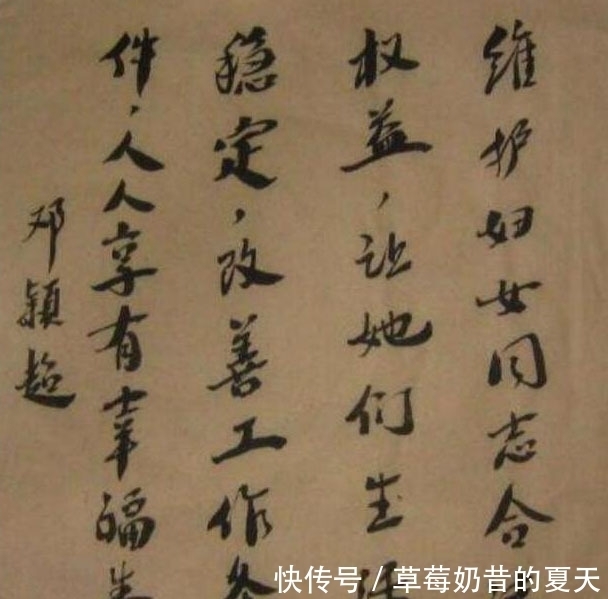 维护妇女同志合
权益，让她们生活
稳定，改善工作条
件，人人享有幸福生
邓颖超
快传号 / 草莓奶昔的夏天